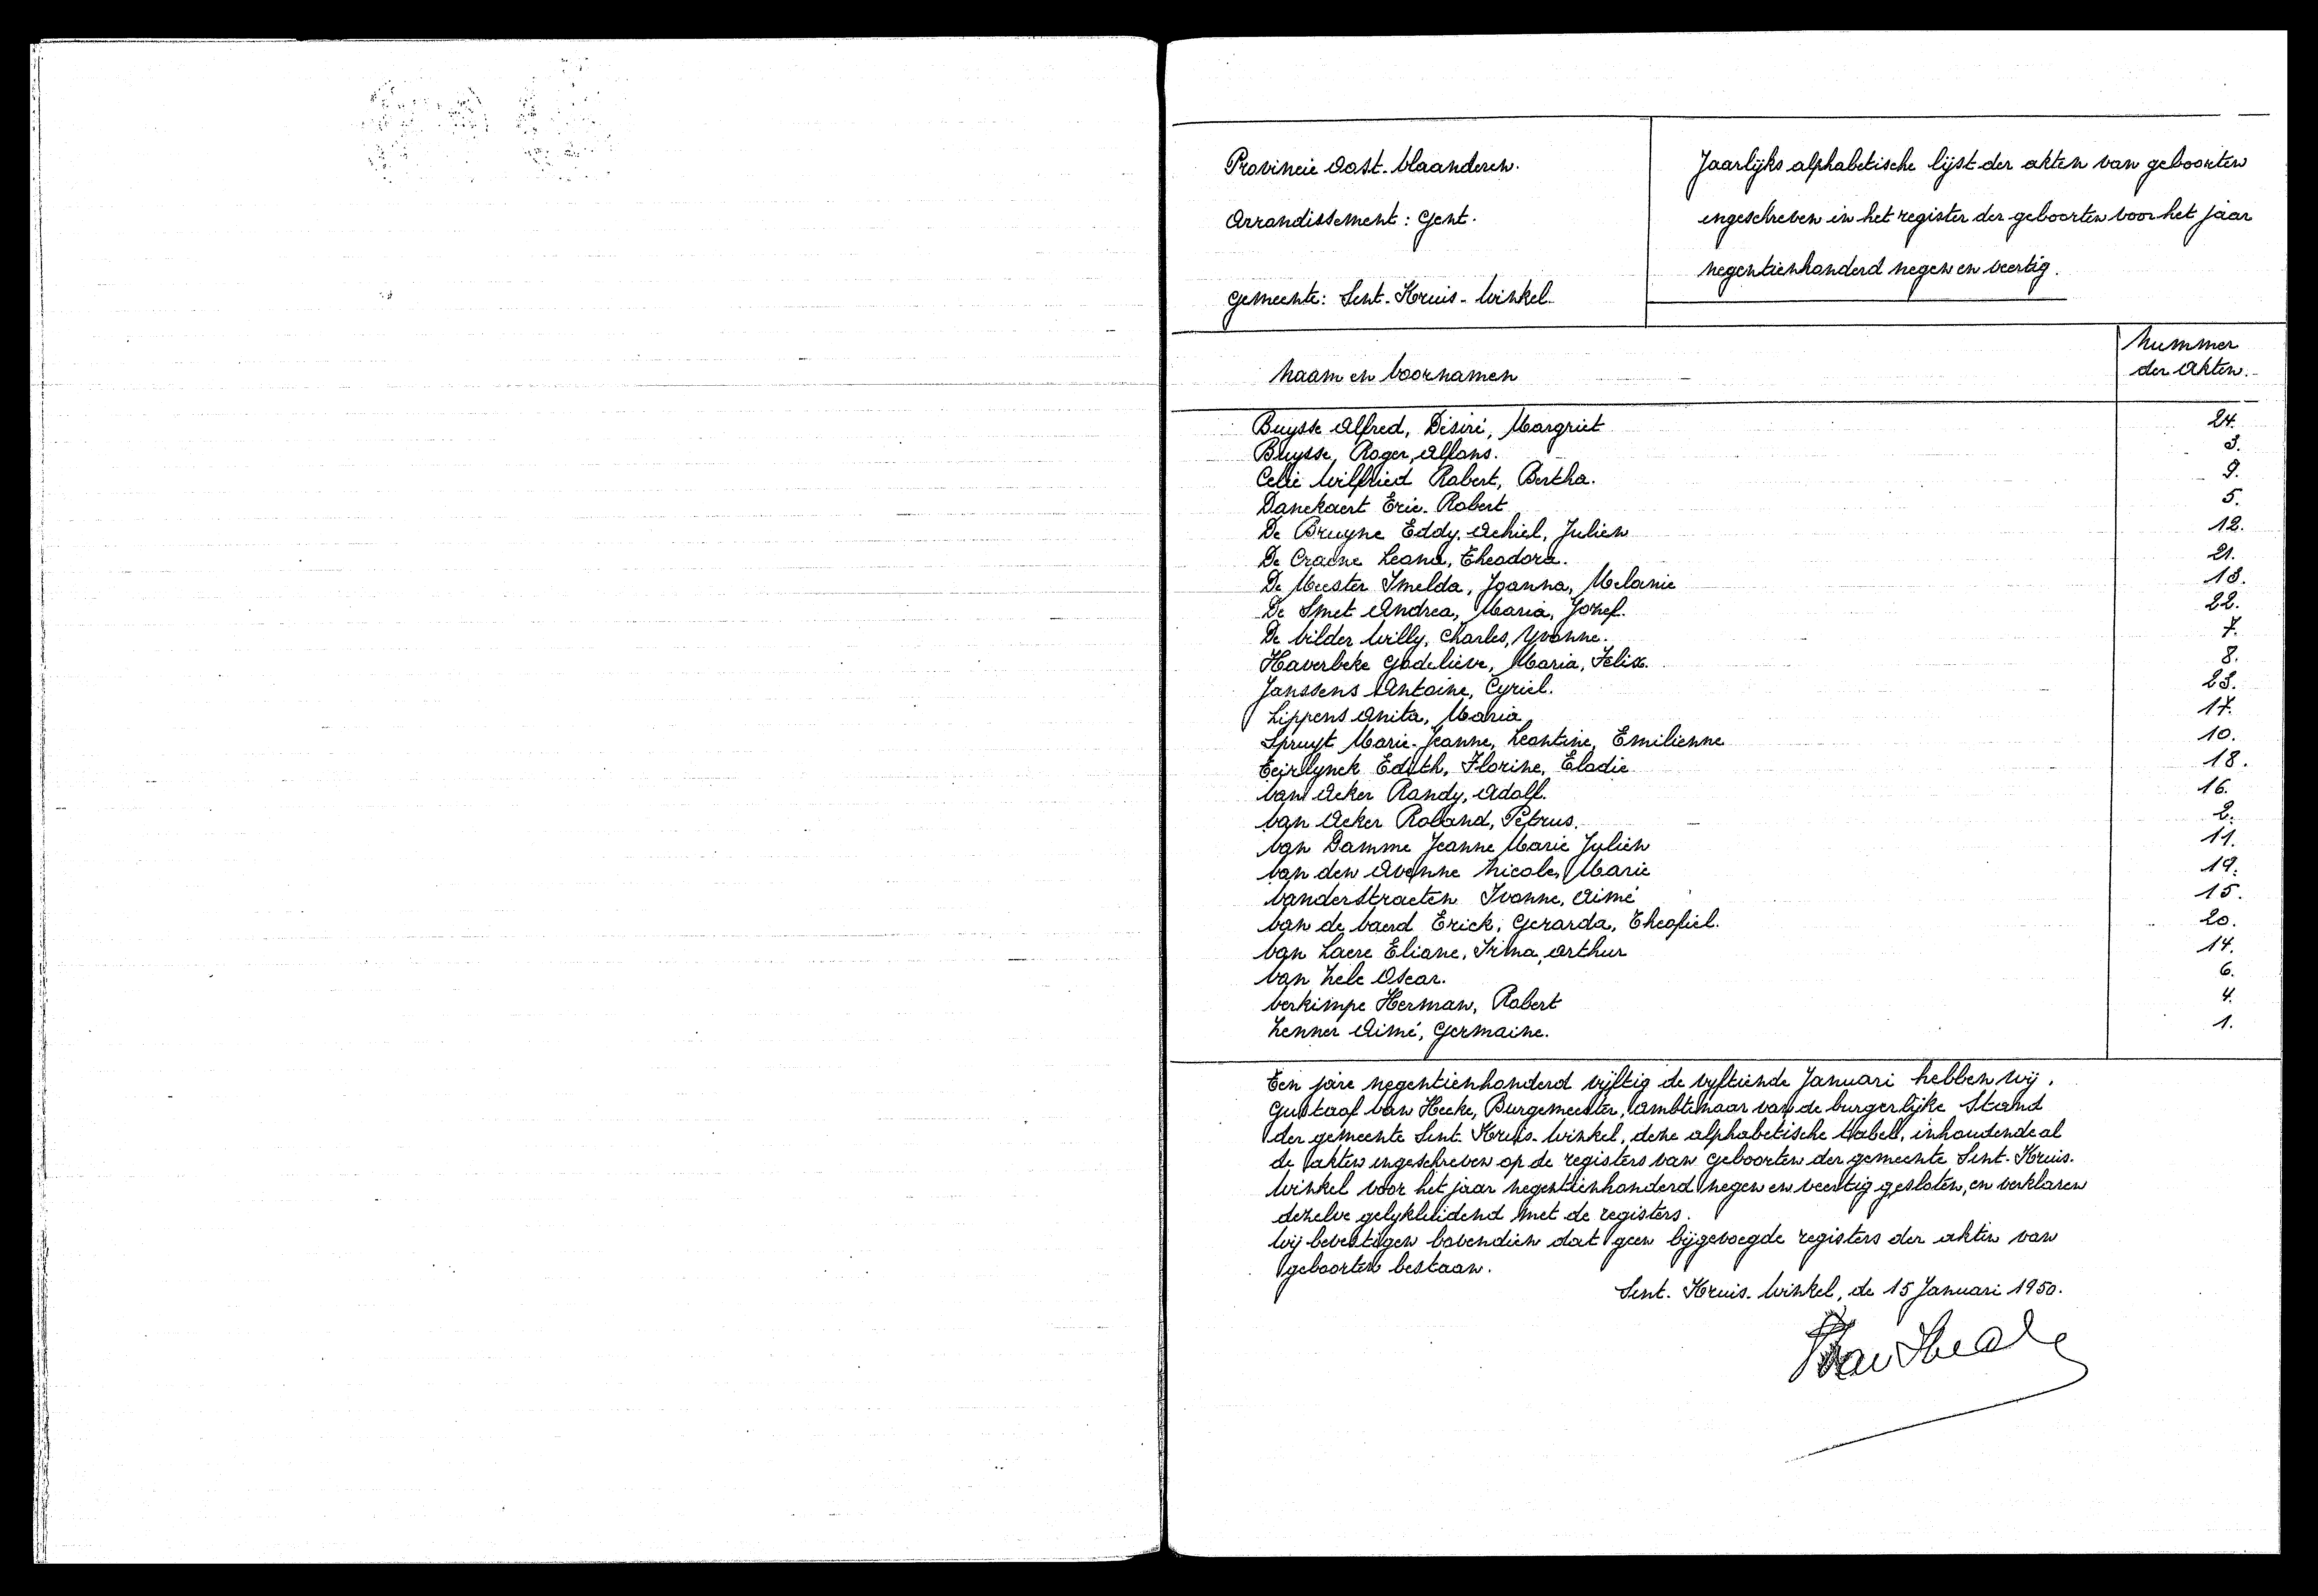 Provincie Oost-Vlaanderen.
Arrondissement: Gent.
Gemeente: Sint-Kruis-Winkel
Jaarlijks alphabetische lijst der akten van geboorten
ingeschreven in het register der geboorten voor het jaar
negentienhonderd negen en veertig.
Naam en Voornamen
Nummer
der Akten.
Buysse Alfred, Désiré, Margriet 24.
Buysse, Roger, Alfons. 3.
Celie Wilfried Robert, Bertha. 9.
Danckaert Eric-Robert 5.
De Bruyne Eddy, Achiel, Julien 12.
De Craene Leona, Theodora. 21.
De Meester Imelda, Joanna, Melanie 13.
De Smet Andrea, Maria, Jozef. 22.
De Wilder Willy, Charles, Yvonne. 7.
Haverbeke Godelieve, Maria, Felix. 8.
Janssens Antoine, Cyriel. 23.
Lippens Anita, Maria 17.
Spruyt Marie-Jeanne, Leontine, Emilienne 10.
Teirlynck Edith, Florine, Elodie 18.
Van Acker Randy, Adolf. 16.
Van Acker Roland, Petrus. 2.
Van Damme Jeanne Marie Julien 11.
Van den Avenne Nicole, Marie 19.
Vanderstraeten Ivonne, Aimé 15.
Van de Vaerd Erick, Gerarda, Theofiel. 20.
Van Laere Eliane, Irma, Arthur 14.
Van Zele Oscar. 6.
Verkimpe Herman, Robert 4.
Zenner Aimé, Germaine. 1.
Ten jare negentienhonderd vijftig de vyftiende Januari hebben wij,
Gustaaf Van Hecke, Burgemeester, Ambtenaar van de burgerlijke Stand
der gemeente Sint-Kruis-Winkel, deze alphabetische tabel, inhoudende al
de akten ingeschreven op de registers van geboorten der gemeente Sint-Kruis-
Winkel voor het jaar negentienhonderd negen en veertig gesloten, en verklaren
dezelve gelykluidend met de registers.
Wij bevestigen bovendien dat geen bijgevoegde registers der akten van
geboorten bestaan.
Sint-Kruis-Winkel, de 15 Januari 1950.